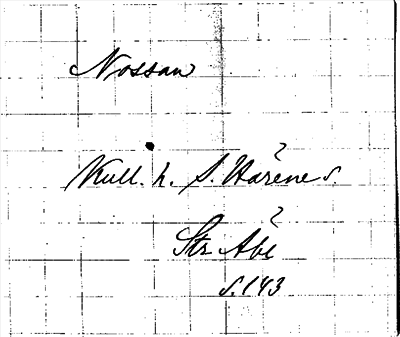 Nossan
Kull. h. S. Härene s.
Str Åbl
s. 143